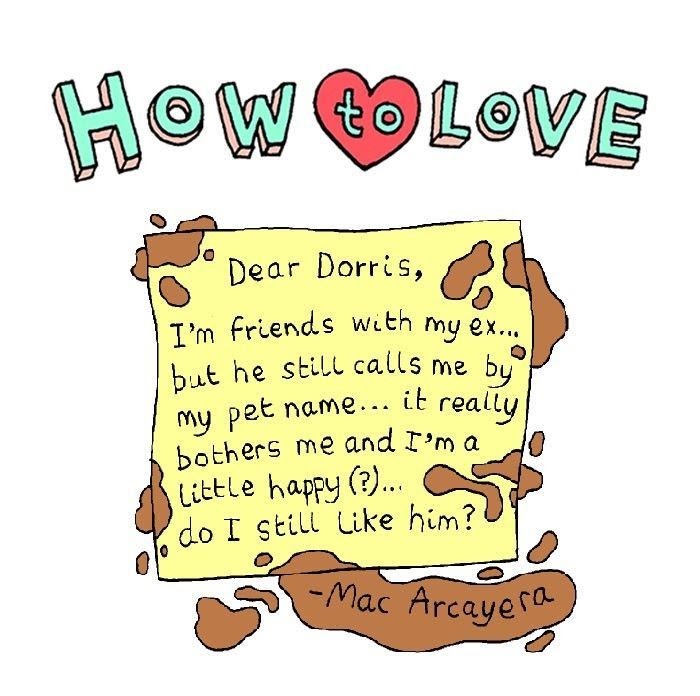 HOW to LOVE
Dear Dorris,
I'm friends with my ex...
but he still calls me by
my pet name... it really
bothers me and I'm a
little happy (?)...
do I still like him?
-Mac Arcayera